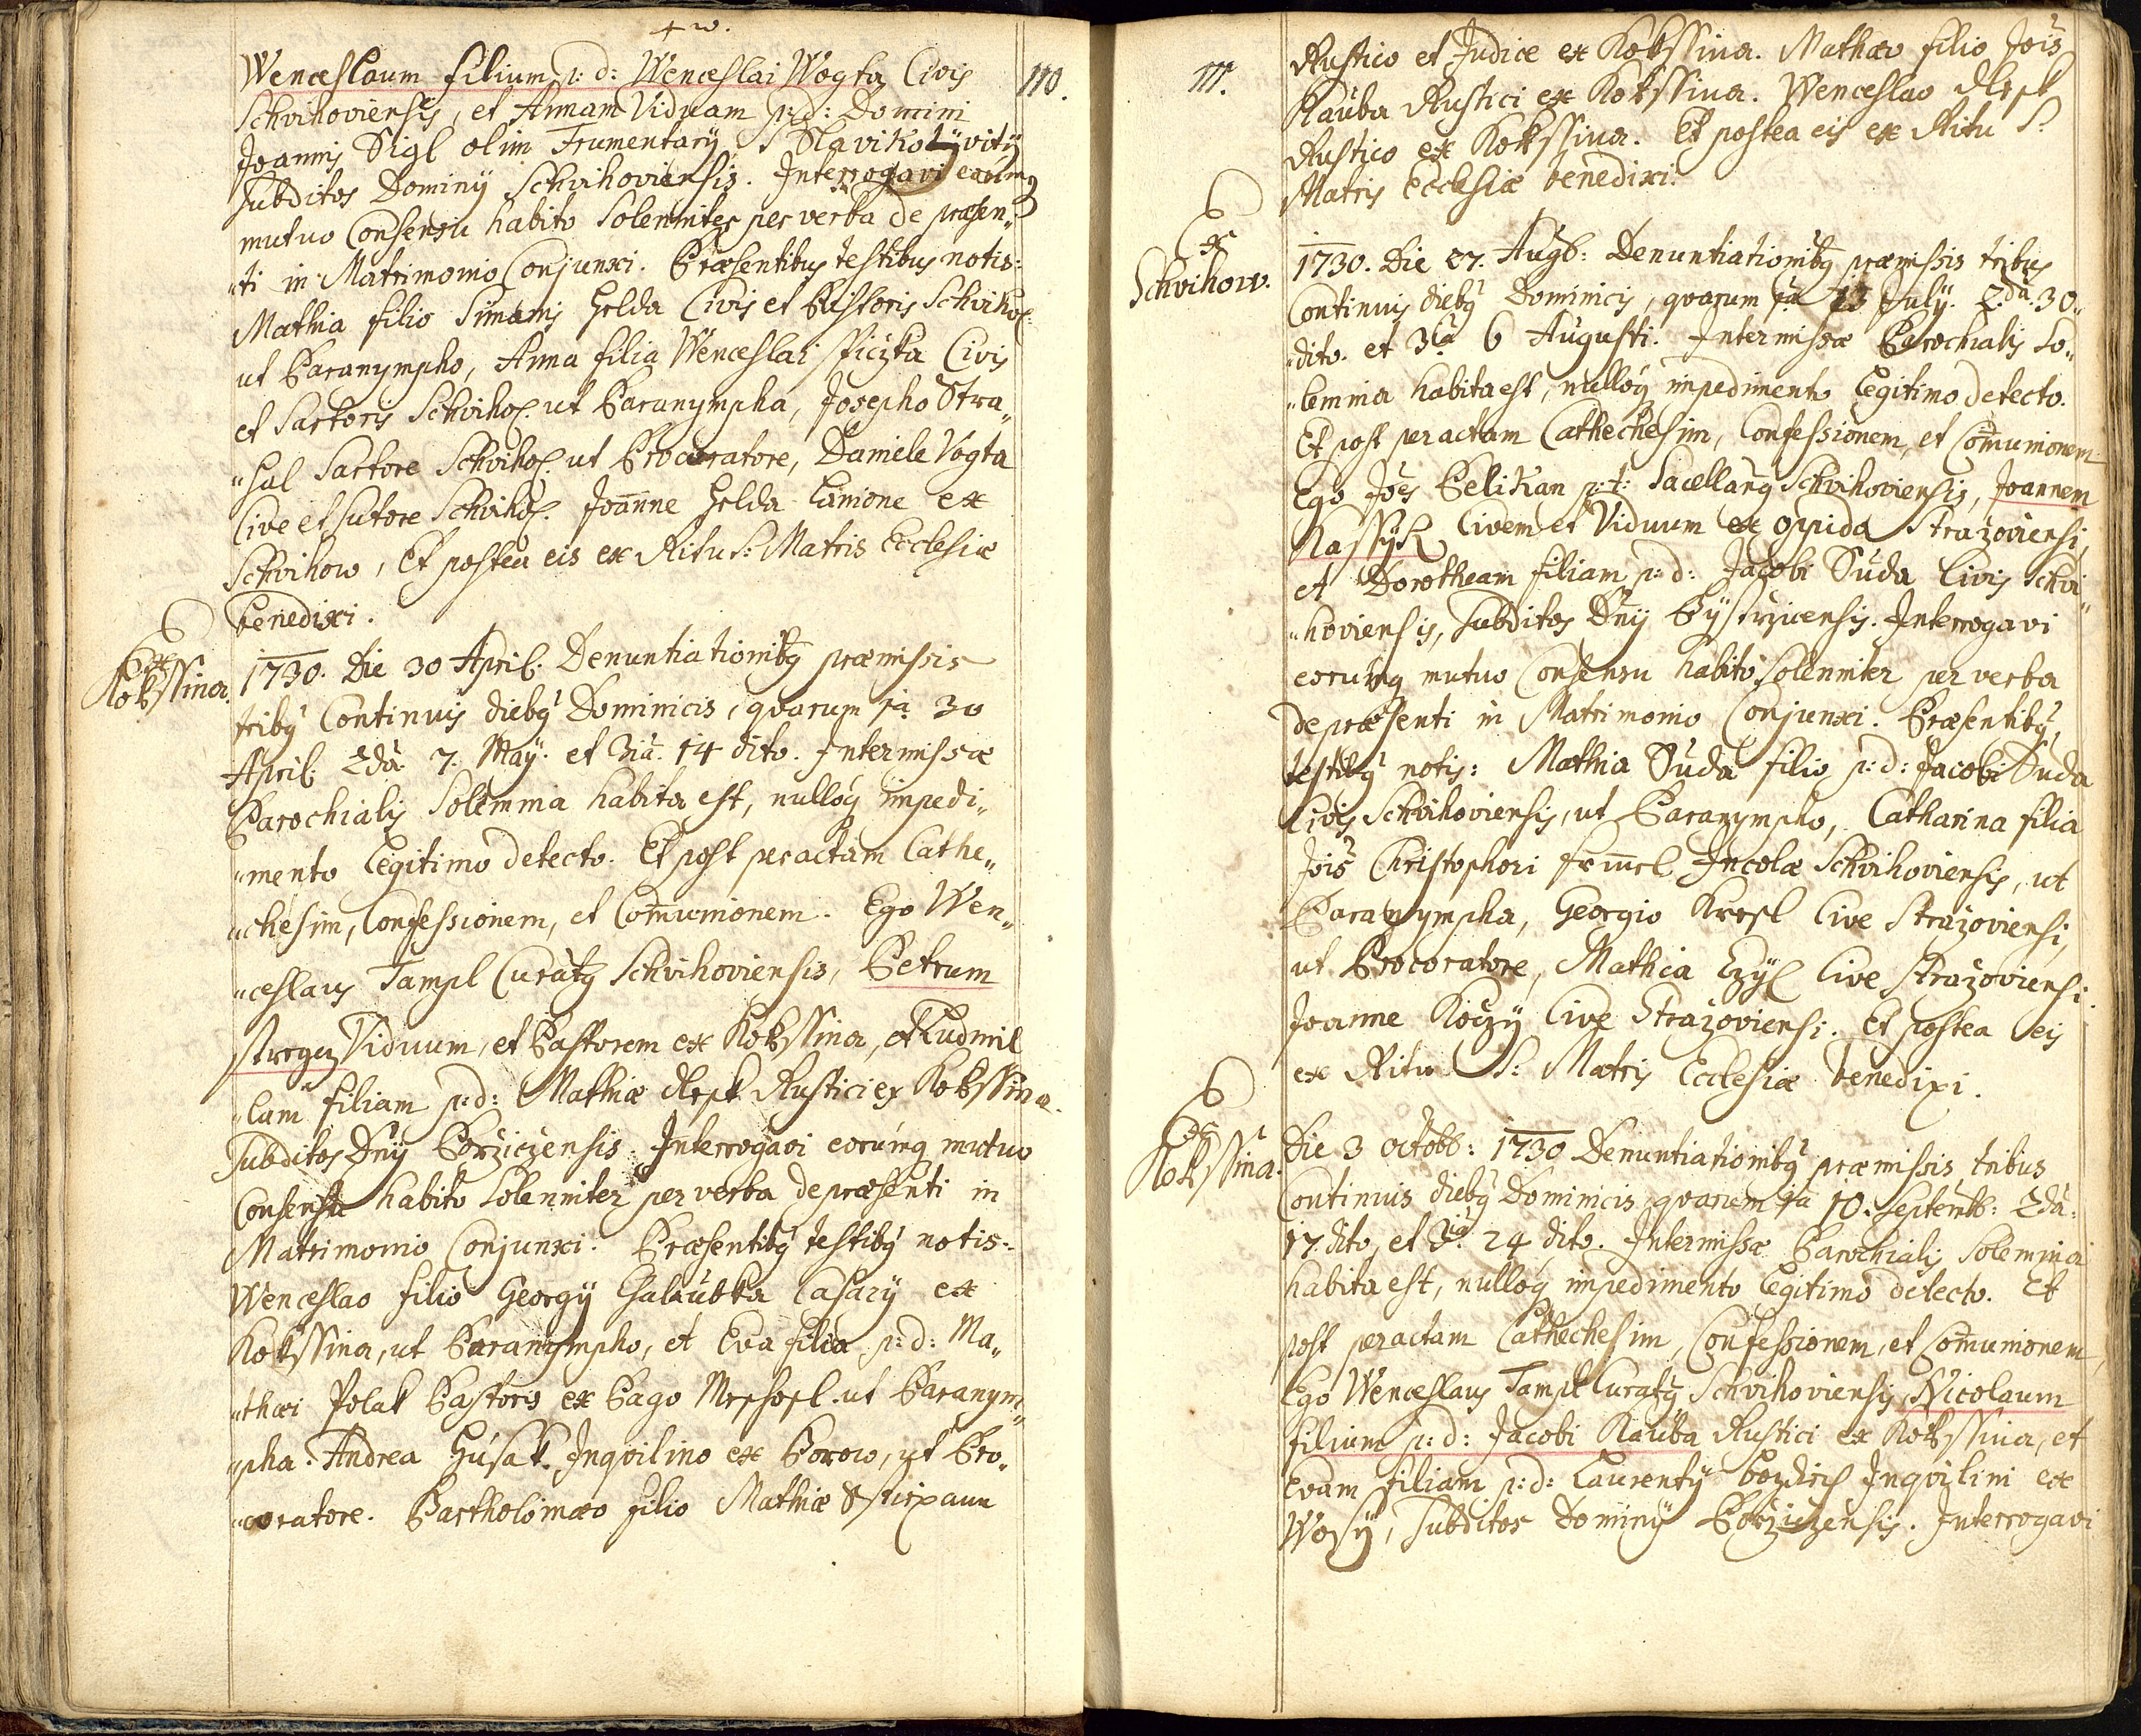 110.
Wenceslaum filium p: d: Wenceslai Wogta Civis
Schvihoviensis, et Annam Viduam p: d: Domini
Joannis Sigl olim Frumentarÿ
Subditos Dominÿ Schvihoviensis. Interrogavi eorumq
mutuo Consensu habito Solenniter per verba de præsen„
„ti in Matrimonio Conjunxi. Præsentibus testibus notis:
Mathia filio Simonis Helda Civis et Pistoris Schviho:
ut Paranympho, Anna filia Wenceslai Civis
et Sartoris Schviho: ut Paranympha, Josepho Stra„
„hal Sartore Schviho: ut Procuratore, Daniele Vogta
Cive et Sutore Schviho: Joanne Helda Lanione ex
Schvihow, Et postea eis ex Ritu S: Matris Ecclesiæ
benedixi.
Ex
Kokssina.
1730. Die 30 April: Denuntiationibq præmissis
tribq Continuis diebq Dominicis, quarum 1a. 30
April: 2da. 7. Maÿ. et 3ia. 14 dito. Intermissæ
Parochialis Solemnia habita est, nulloq impedi„
„mento legitimo detecto. Et post peractam Cathe„
„chesim, Confessionem, et Comunionem. Ego Wen„
„ceslaus Tampl Curatq Schvihoviensis, Petrum
Viduum, et Pastorem ex Kokssina, et Ludmil
„lam filiam p: d: Mathiæ Rustici ex Kokssina.
Subditos Dnÿ Porziczensis. Interrogavi eorumq mutuo
Consensu habito Solenniter per verba de præsenti in
Matrimonio Conjunxi. Præsentibq testibq notis:
Wenceslao filio Georgÿ Chalaubka Casarÿ ex
Kokssina, ut Paranympho, et Eva filia p: d: Ma„
„thæi Polak Pastoris ex Pago ut Paranym„
„pha. Andrea Husak Inqvilino ex Borow, ut Pro„
„coratore. Bartholomæo filio Mathiæ
111.
Rustico et Judice ex Kokssina. Mathæo filio Jois
Kauba Rustici ex Kokssina. Wenceslao
Rustico ex Kokssina. Et postea eis ex Ritu S:
Matris Ecclesiæ benedixi.
Ex
Schvihow.
1730. Die 27. Augb: Denuntiationibq præmissis tribus
Continuis diebq Dominicis, quarum 1a 23 Julÿ. 2.da 30.
„dito. et 3ia 6 Augusti. Intermissæ Parochialis So„
„lemnia habita est, nulloq impedimento legitimo detecto.
Et post peractam Cathechesim, Confessionem, et Comunionem
Ego Joes Pelikan p: t: Sacellanq Schvihoviensis, Joannem
Civem et Viduum ex oppido Strazoviensi,
et Dorotheam filiam p: d: Jacobi Suda Civis Schvi„
„hoviensis, Subditos Dnÿ Bÿstrzicensis. Interrogavi
eorumq mutuo Consensu habito Solenniter per verba
de præsenti in Matrimonio Conjunxi. Præsentibq
testibq notis: Mathia Suda filio p: d: Jacobi Suda
Civis Schvihoviensis, ut Paranympho, Catharina filia
Jois Christophori Incolæ Schvihoviensis, ut
Paranympha, Georgio Cive Strazoviensi,
ut Procoratore, Mathia Cive Strazoviensi.
Joanne Koczÿ Cive Strazoviensi. Et postea eis
ex Ritu S: Matris Ecclesiæ benedixi.
Ex
Kokssina.
Die 3 octobb: 1730 Denuntiationibq præmissis tribus
Continuis diebq Dominicis, quarum 1a 10. Septemb: 2da.
17. dito, et 3ia. 24 dito. Intermissæ Parochialis Solemnia
habita est, nulloq impedimento legitimo detecto. Et
post peractam Cathechesim, Confessionem, et Comunionem,
Ego Wenceslaus Tampl Curatq Schvihoviensis, Nicolaum
filium p: d: Jacobi Kauba Rustici ex Kokssina, et
Evam filiam p: d: Laurentÿ Inqvilini ex
Wosÿ, Subditos Dominÿ Porziczensis. Interrogavi